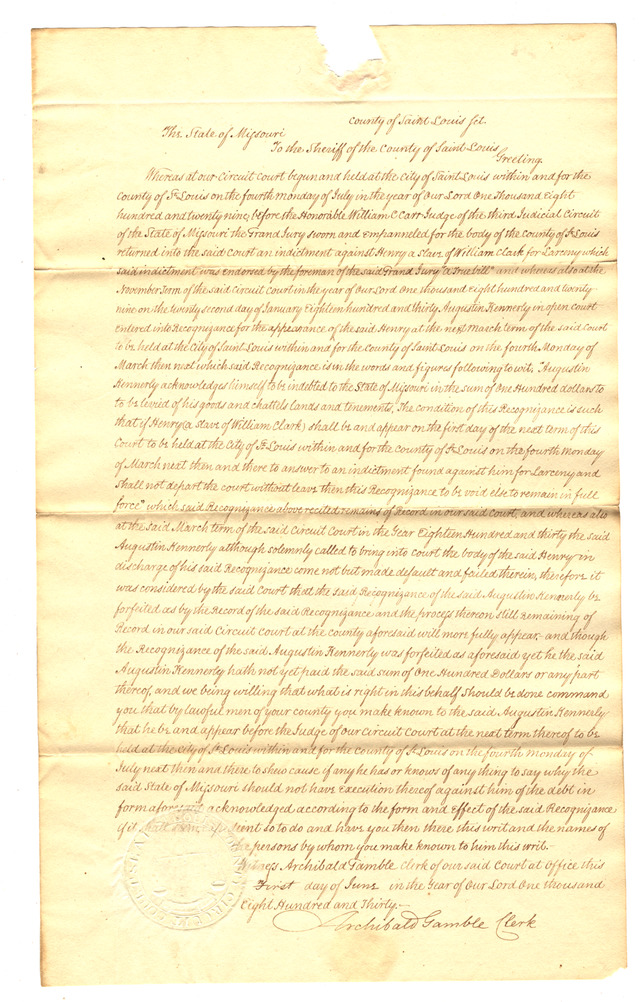 County of Saint Louis sct.
The State of Missouri
To the Sheriff of the County of Saint Louis
Greeting.
Whereas at our Circuit Court begun and held at the City of Saint Louis within and for the
County of St Louis on the fourth monday of July in the year of Our Lord One Thousand Eight
hundred and twenty nine, before the Honorable William C Carr Judge of the third Judicial Circuit
of the State of Missouri the Grand Jury sworn and empanneled for the body of the county of St Louis
returned into the said Court an indictment against Henry a Slave of William Clark for Larceny which
said indictment was endorsed by the foreman of the said Grand Jury "a true bill" and whereas also at the
November Term of the said Circuit Court in the year of Our Lord One thousand Eight hundred and twenty
nine on the twenty second day of January Eighteen hundred and thirty Augustin Kennerly in open court
entered into Recognizance for the appearance of the said Henry at the next March term of the said Court
to be held at the City of Saint Louis within and for the County of Saint Louis on the fourth Monday of
March then next which said Recognizance is in the words and figures following to wit, "Augustin
Kennerly acknowledges himself to be indebted to the State of Missouri in the sum of One Hundred dollars to
to be levied of his goods and chattels lands and tenements, The condition of this Recognizance is such
that if Henry (a Slave of William Clark) shall be and appear on the first day of the next term of this
Court to be held at the City of St Louis within and for the county of St Louis on the fourth monday
of March next then and there to answer to an indictment found against him for Larceny and
Shall not depart the court without leave then this Recognizance to be void else to remain in full
force" which said Recognizance above recited remains of Record in our said Court, and whereas also
at the said March term of the said Circuit Court in the Year Eighteen Hundred and thirty the said
Augustin Kennerly although solemnly called to bring into court the body of the said Henry in
discharge of his said Recognizance came not but made default and failed therein, therefore it
was considered by the said Court that the said Recognizance of the said Augustin Kennerly be
forfeited as by the Record of the said Recognizance and the process thereon still remaining of
Record in our said Circuit Court at the county aforesaid will more fully appear. and though
the Recognizance of the said Augustin Kennerly was forfeited as aforesaid yet he the said
Augustin Kennerly hath not yet paid the said sum of One Hundred Dollars or any part
thereof, and we being willing that what is right in this behalf should be done command
you that by lawful men of your county you make known to the said Augustin Kennerly
that he be and appear before the Judge of our Circuit Court at the next term thereof to be
held at the City of St Louis within and for the County of St Louis on the fourth monday of
July next then and there to shew cause if any he has or knows of anything to say why the
said State of Missouri should not have Execution thereof against him of the debt in
form aforesaid acknowledged according to the form and Effect of the said Recognizance
if it shall seem expedient so to do and have you then there this writ and the names of
the persons by whom you make known to him this writ.
Witness Archibald Gamble Clerk of our said Court at Office this
First day of June in the Year of Our Lord One thousand
Eight Hundred and Thirty.
Archibald Gamble Clerk